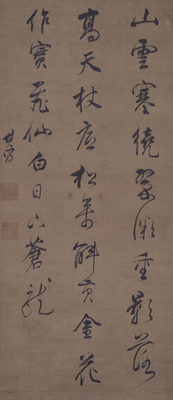 山雲寒繞翠微重影落
高天杖底松萬斛黃金花
作實飛仙白日下蒼龍
其昌